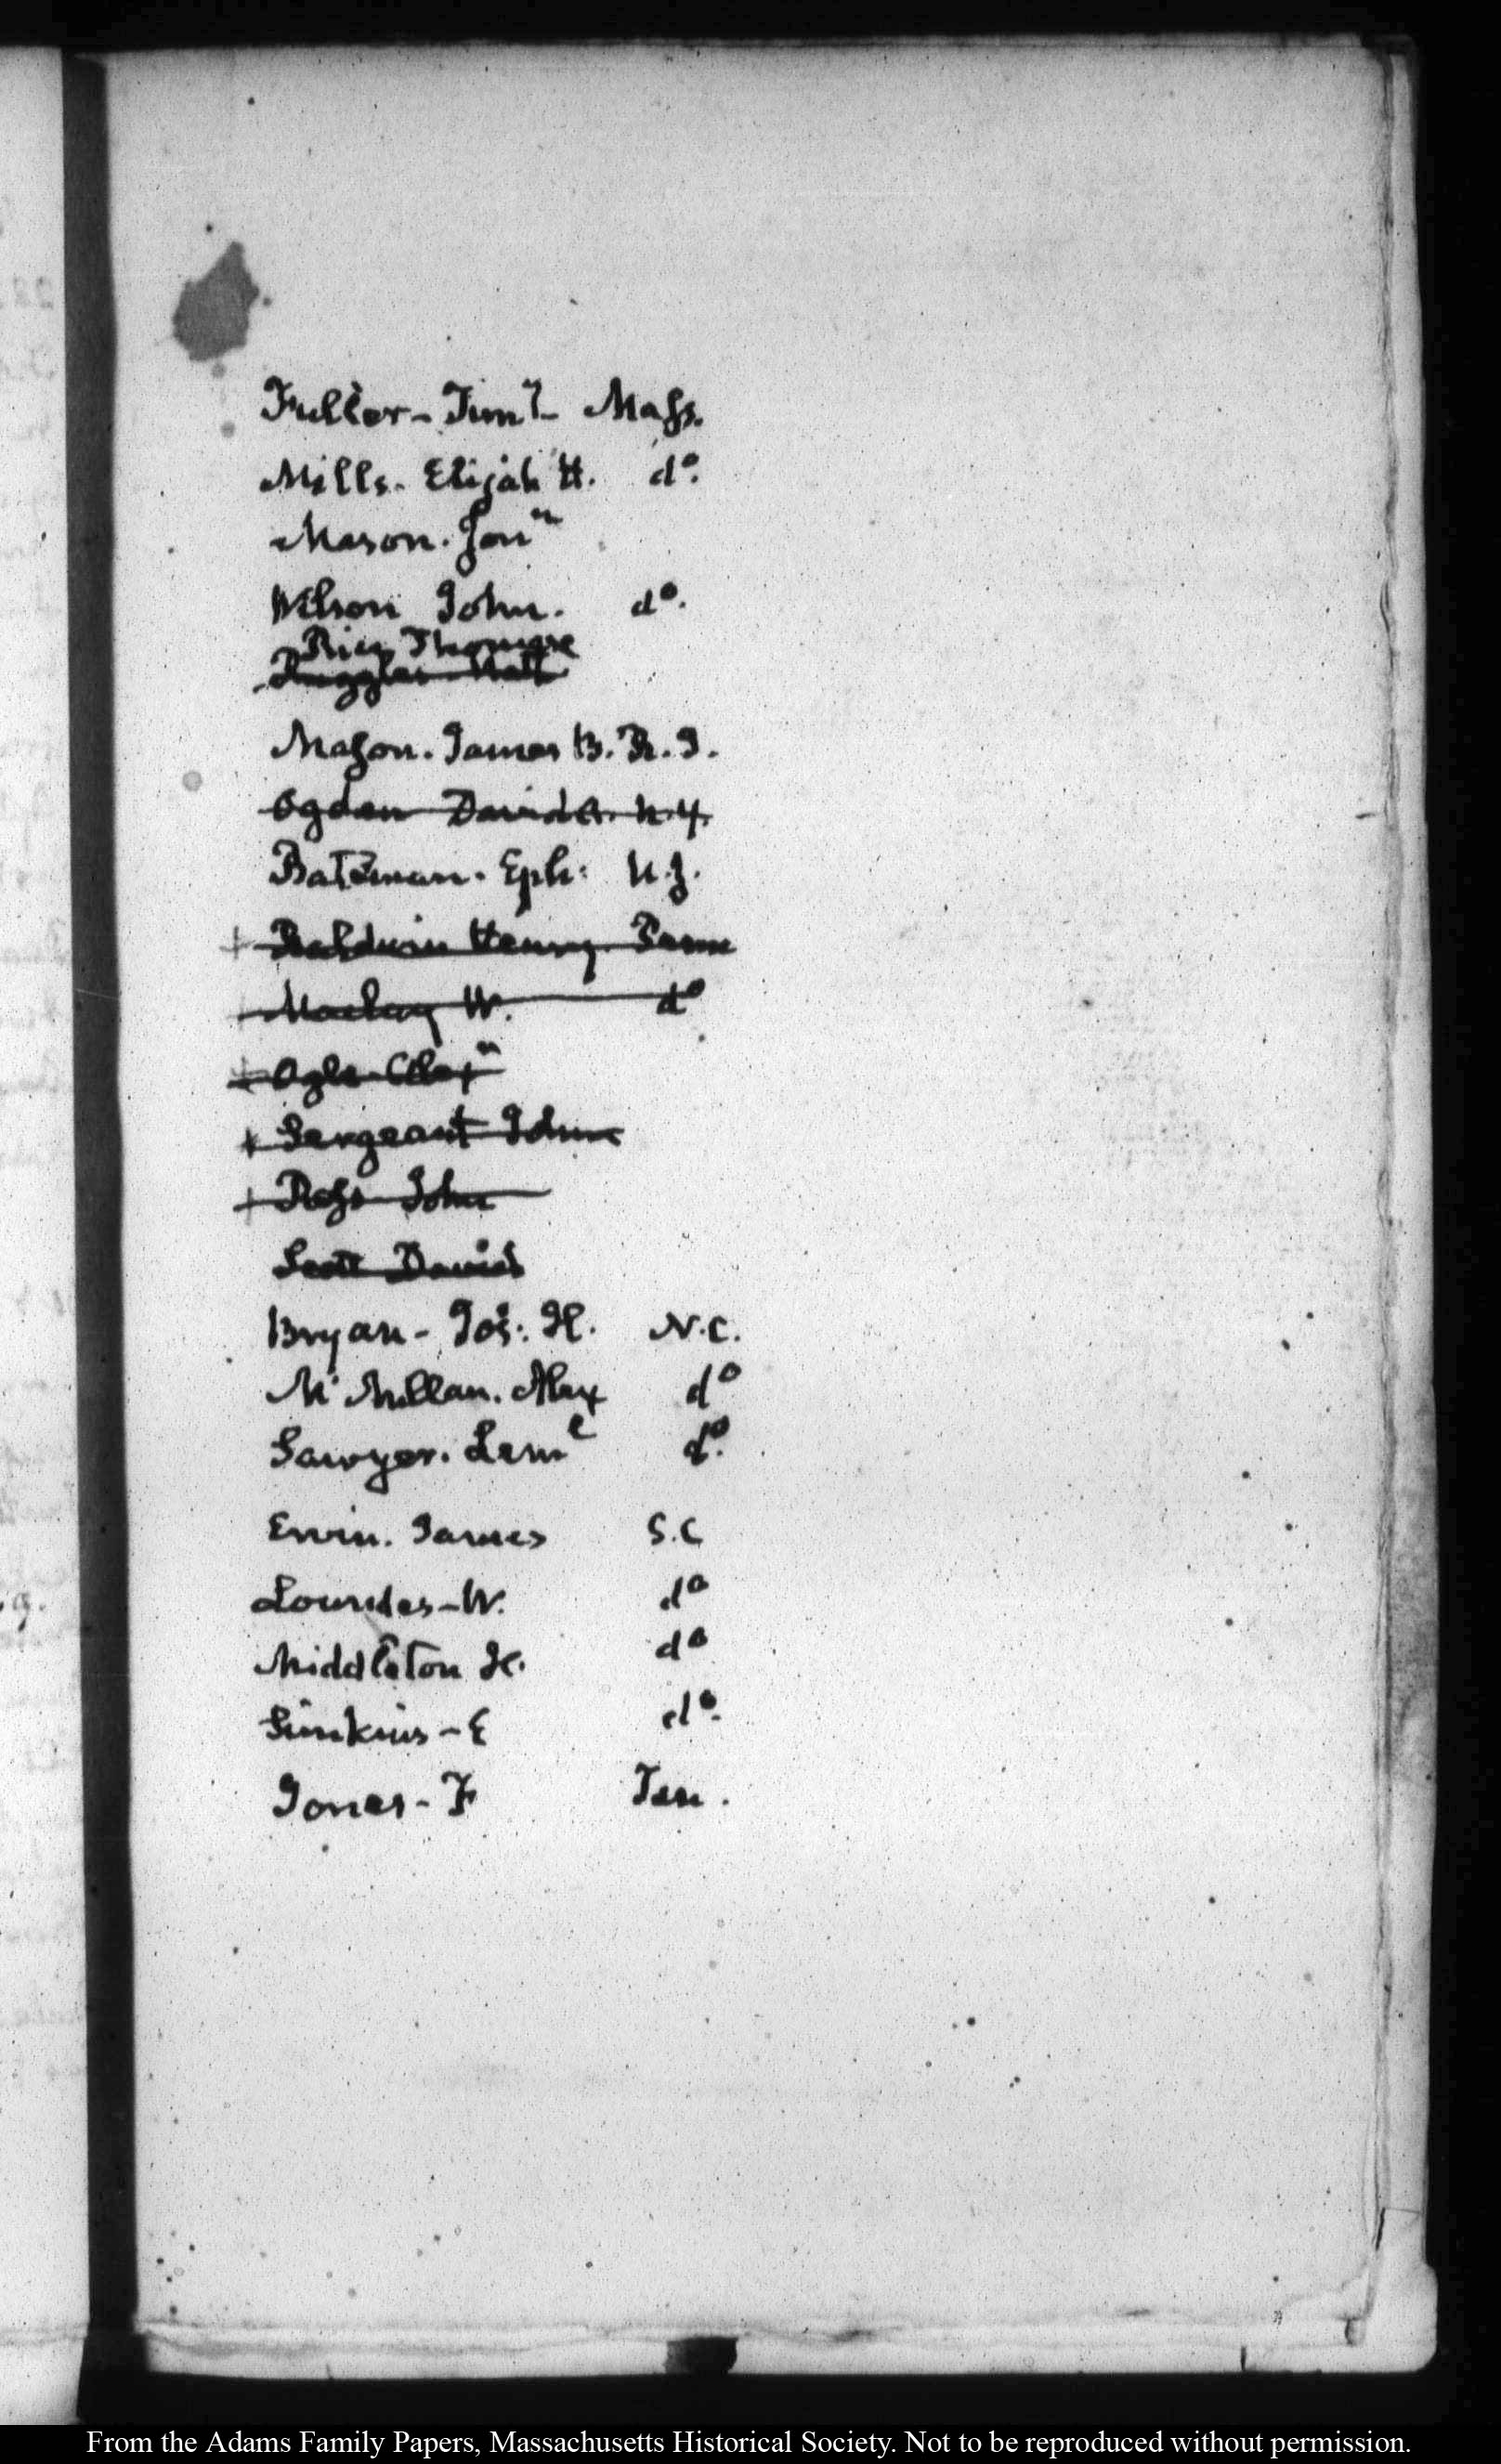 Fuller - Timy - Mass.
Mills - Elijah H. do.
Mason. Jonn
Wilson John. do.
Rice Thomas
Ruggles Natl
Mason. James B. R.I.
Ogden David A. N.Y.
Bateman. Eph: N.J.
+ Baldwin Henry. Penn
+ Maclay W. do
+ Ogle Alexr
+ Sergeant John
+ Ross John
Scott David
Bryan - Jos: H. N.C.
Mc Millan. Alex do
Sawyer. Leml do.
Ervin. James S.C
Lowndes - W. do
Middleton H. do
Simkins - E do.
Jones - F Ten.
9.
From the Adams Family Papers, Massachusetts Historical Society. Not to be reproduced without permission.